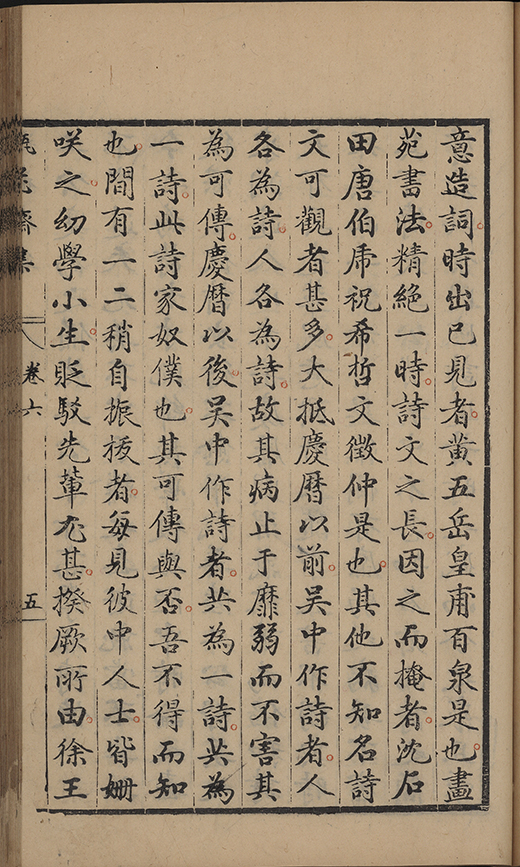 意造詞時出已見者黃五岳皇甫百泉是也畫
苑書法精絕一時詩文之長因之而掩者沈石
田唐伯虎祝希哲文徵仲是也其他不知名詩
文可觀者甚多大抵慶曆以前吳中作詩者人
各為詩人各為詩故其病止于靡弱而不害其
為可傳慶曆以後吳中作詩者共為一詩共為
一詩此詩家奴僕也其可傳與否吾不得而知
也間有一二稍自振拔者每見彼中人士皆姍
咲之幼學小生貶駁先輩尤甚揆厥所由徐王
齋集
卷六
五